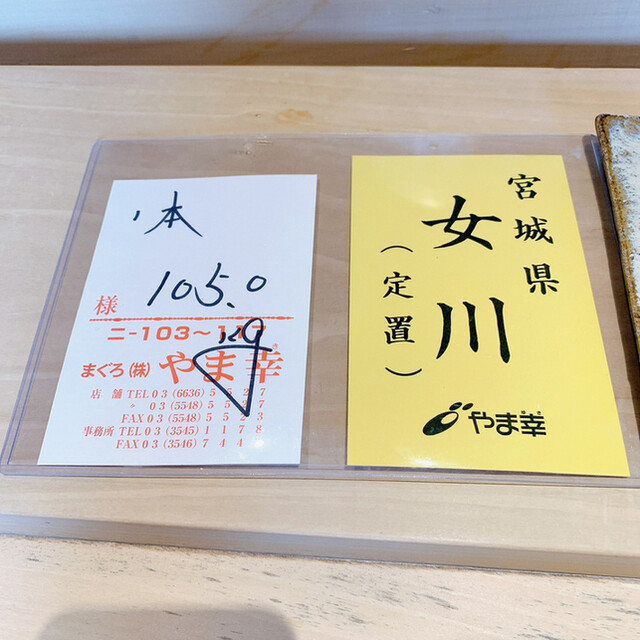 1本
105.0
様
ニ-103~117
まぐろ(株)やま幸
店舗 TEL 03 (6636) 5527
〃 03 (5548) 5537
FAX 03 (5548) 5573
事務所 TEL 03 (3545) 1178
FAX 03 (3546) 744
宮城県
女川
(定置)
やま幸